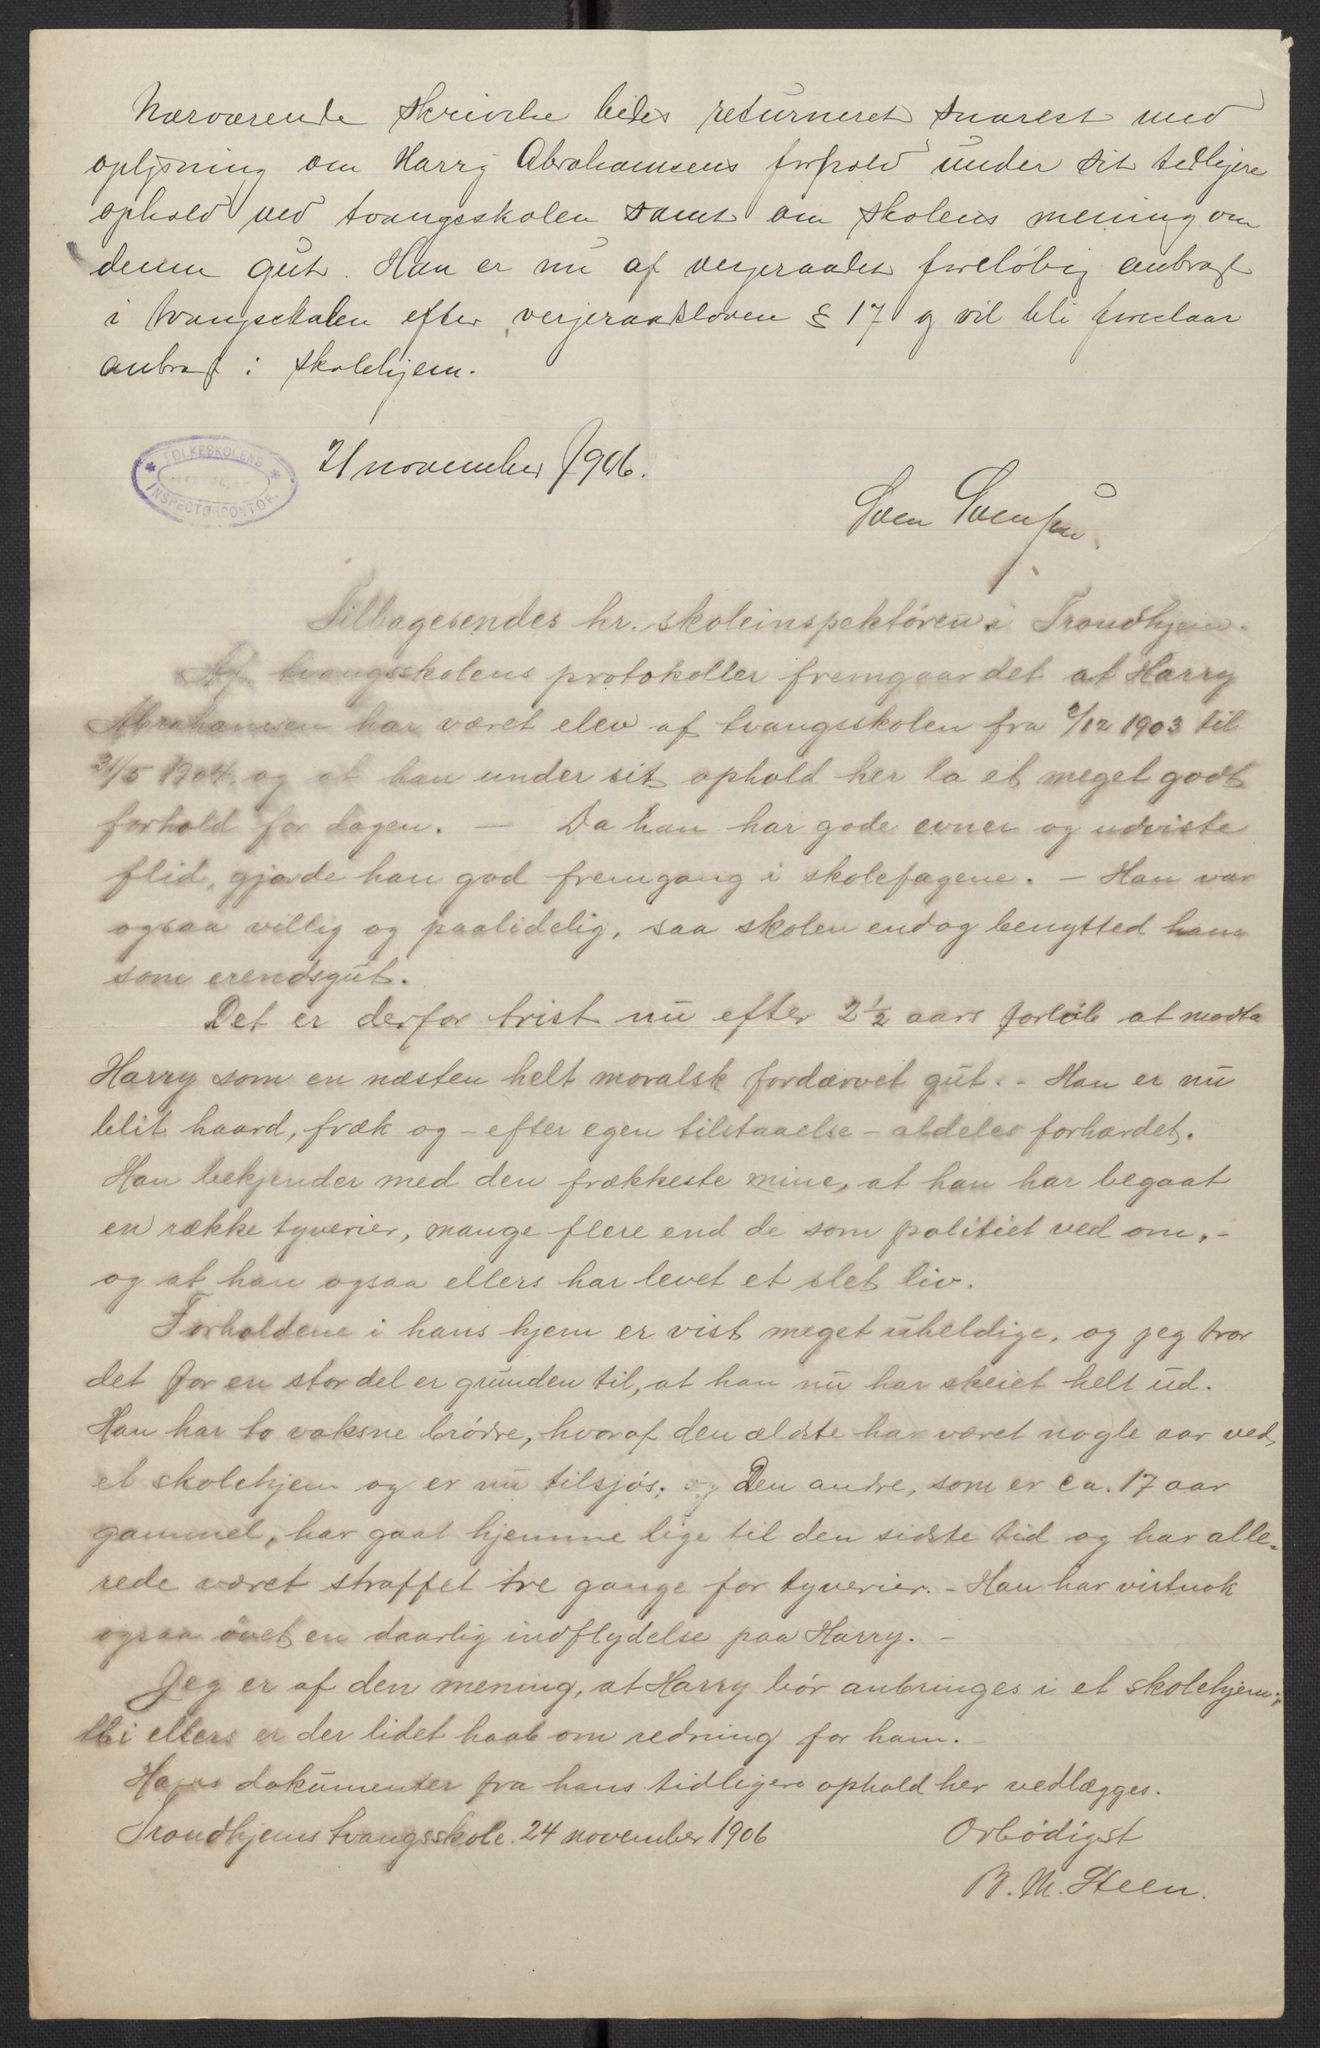 Nærværende skrivelse bedes returneret snarest med
oplysning om Harry Abrahamsens forhold under sit tidligere
ophold ved tvangsskolen samt om skolens mening om
denne gut. Han er nu af vergeraadet foreløbig anbragt
i tvangsskolen efter vergeraadsloven § 17 og vil bli foreslaat
anbragt i skolehjem.
FOLKESKOLENS
INSPECTØRCONTOR.
21 november 1906.
Sven Svensen
Tilbagesendes hr. skoleinspektøren i Trondhjem.
Af tvangsskolens protokoller fremgaar det at Harry
Abrahamsen har været elev af tvangsskolen fra 2/12 1903 til
31/5 1904. og at han under sit ophold her la et meget godt
forhold for dagen. — Da han har gode evner og udviste
flid, gjorde han god fremgang i skolefagene. — Han var
ogsaa villig og paalidelig, saa skolen endog benytted ham
som erendsgut.
Det er derfor trist nu efter 2½ aars forløb at modta
Harry som en næsten helt moralsk fordærvet gut. - Han er nu
blit haard, fræk og - efter egen tilstaaelse - aldeles forhærdet.
Han bekjender med den frækkeste mine, at han har begaat
en række tyverier, mange flere end de som politiet ved om, -
og at han ogsaa ellers har levet et slet liv.
Forholdene i hans hjem er vist meget uheldige, og jeg tror
det for en stor del er grunden til, at han nu har skeiet helt ud.
Han har to voksne brødre, hvoraf den ældste har været nogle aar ved
et skolehjem og er nu tilsjøs; og Den andre, som er ca. 17 aar
gammel, har gaat hjemme lige til den sidste tid og har alle-
rede været straffet tre gange for tyverier. - Han har vistnok
ogsaa øvet en daarlig indflydelse paa Harry. -
Jeg er af den mening, at Harry bør anbringes i et skolehjem;
thi ellers er der lidet haab om redning for ham. -
Hans dokumenter fra hans tidligere ophold her vedlægges.
Trondhjems tvangsskole. 24 november 1906
Ærbødigst
B. M. Steen.